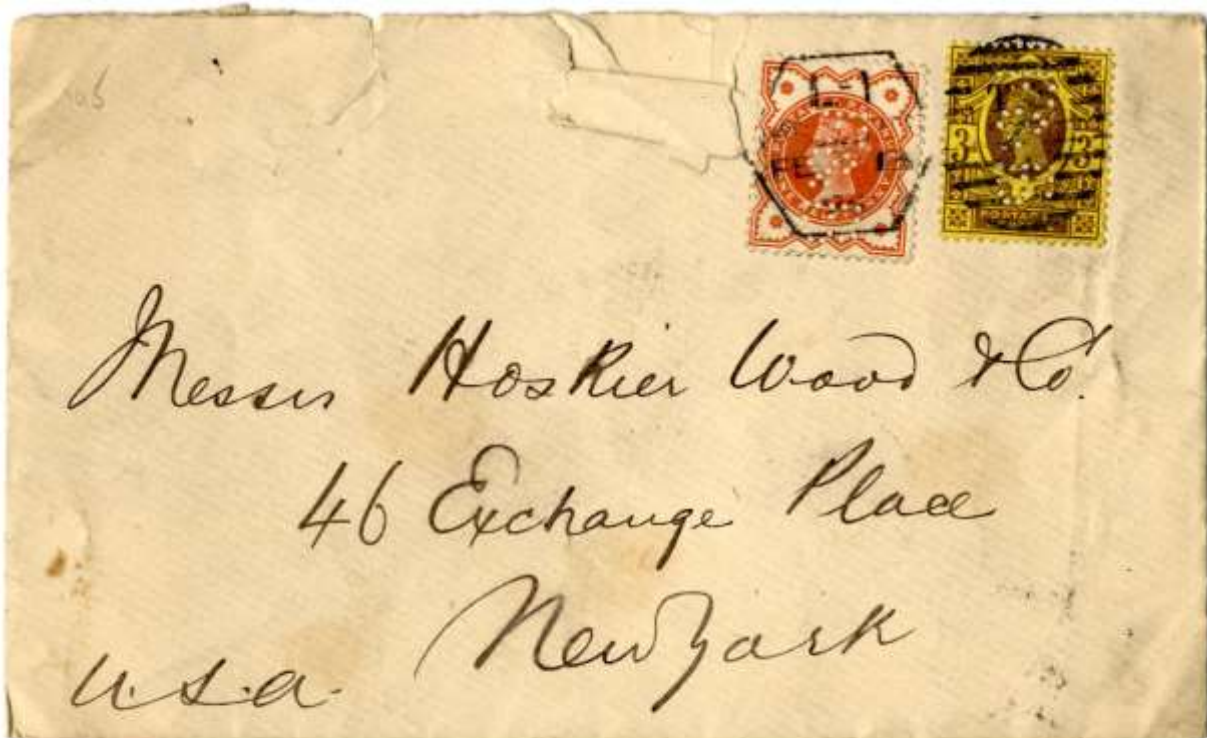 Messrs Hoskier Wood & Co.
46 Exchange Place
New York
U.S.A.
3 3
POSTAGE